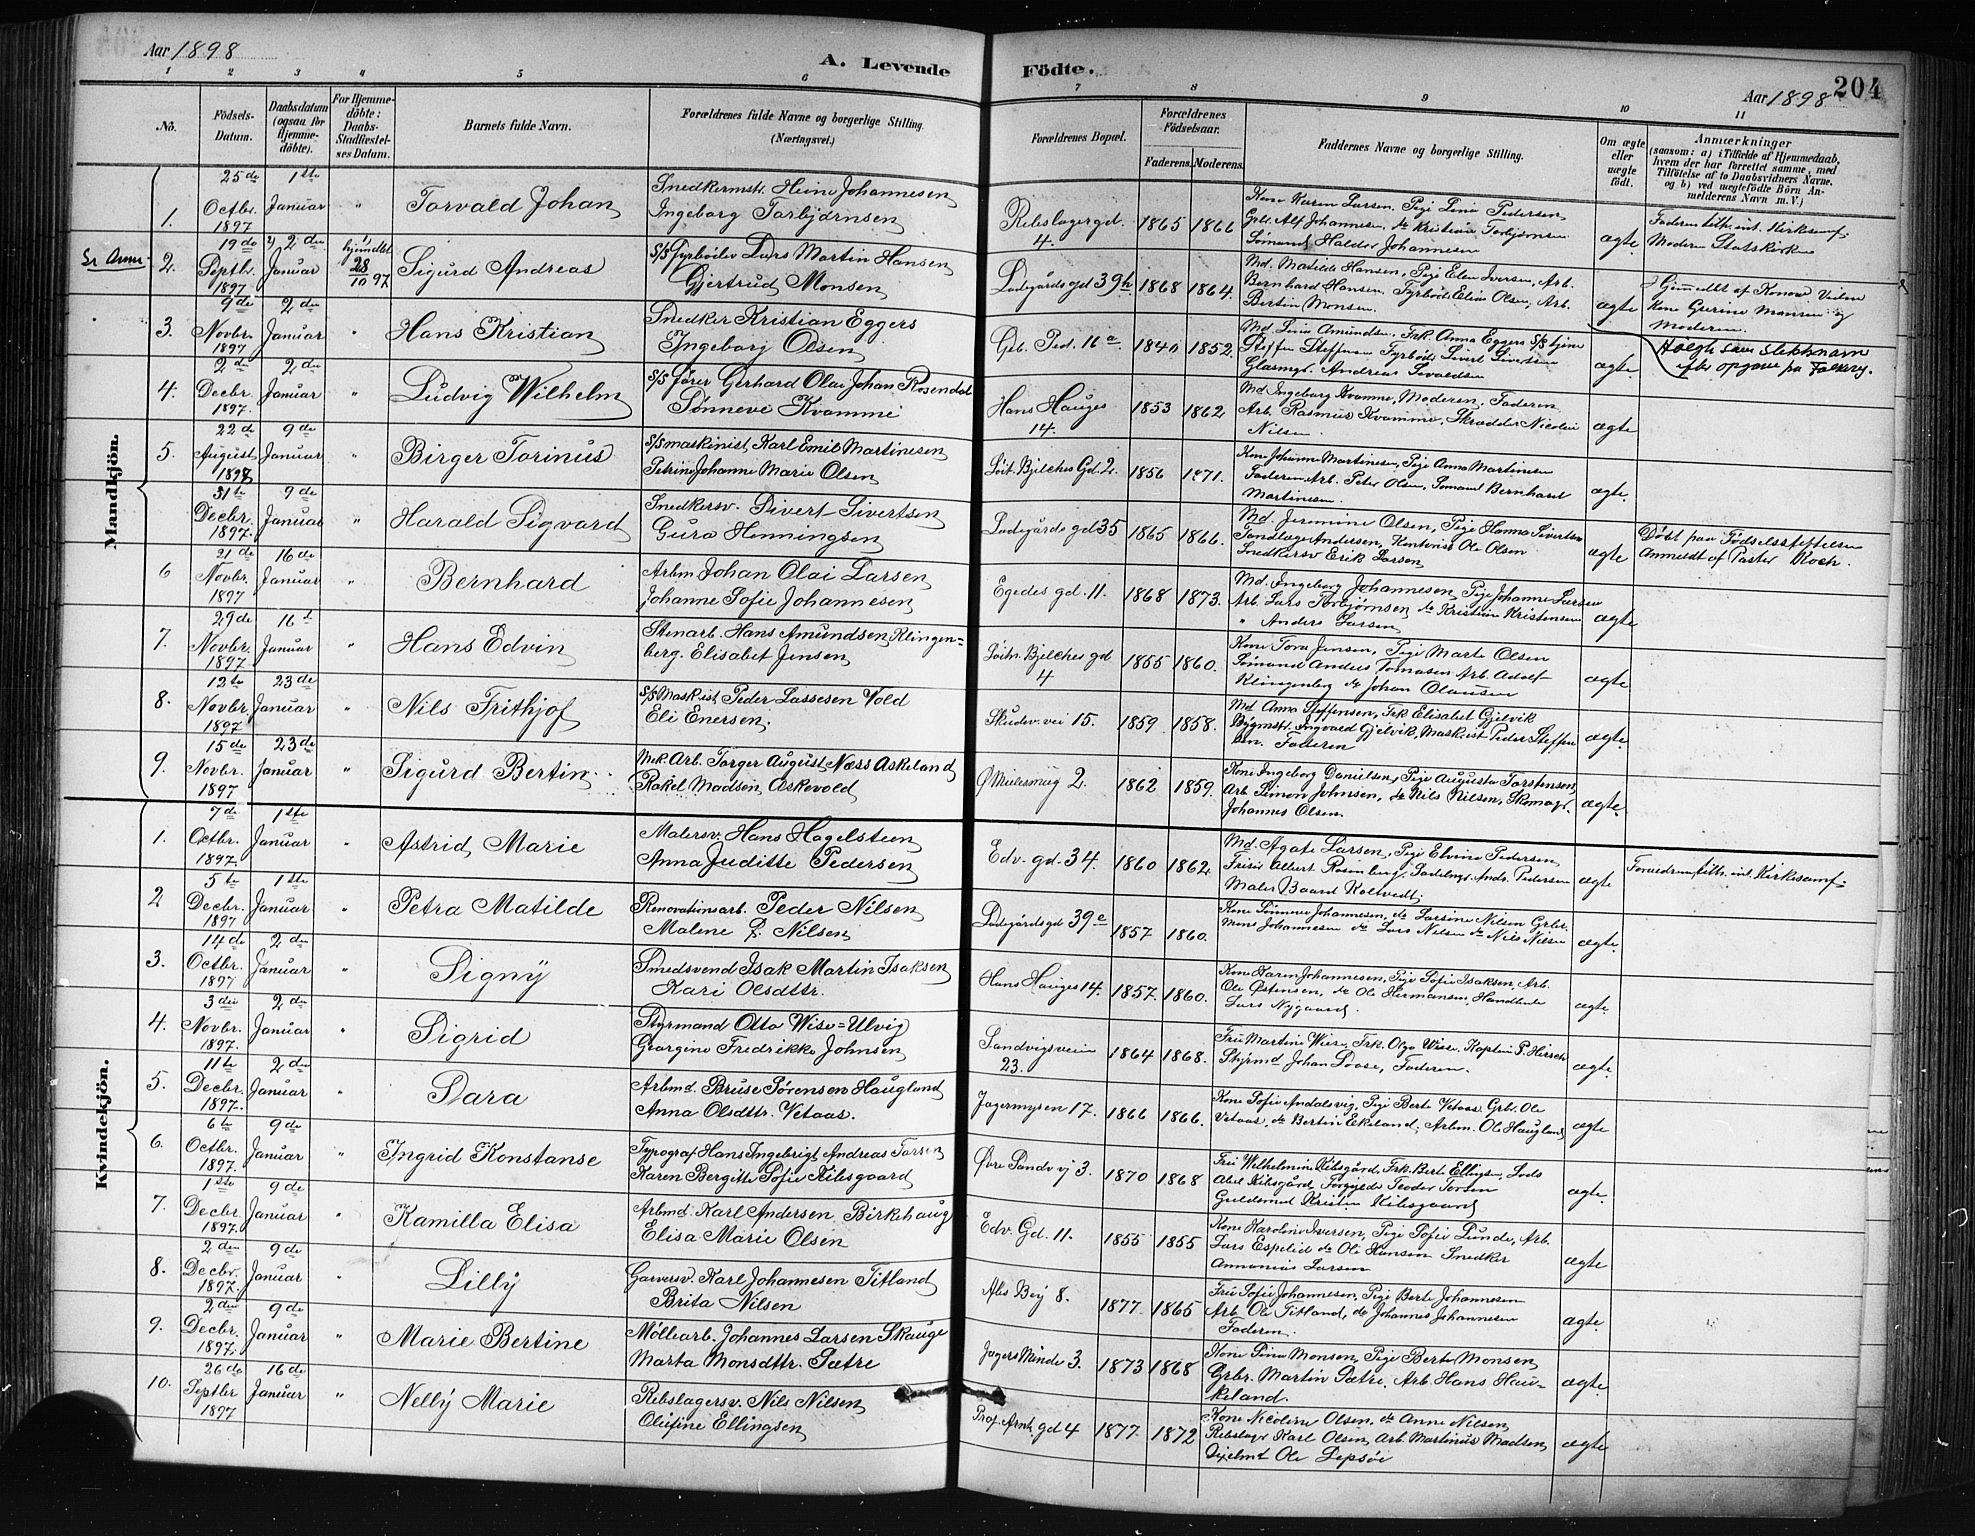 Aar 1898
A. Levende Födte.
Aar 1898
204
1 2 3 4 5 6 7 8 9 10 11
No.
Födsels-Datum.
Daabsdatum (ogsaa for Hjemme-döbte).
For Hjemme-döbte: Daabs-Stadfæstel-ses Datum.
Barnets fulde Navn.
Forældrenes fulde Navne og borgerlige Stilling. (Næringsvei.)
Forældrenes Bopæl.
Forældrenes Födselsaar.
Faderens. Moderens.
Faddernes Navne og borgerlige Stilling.
Om ægte eller uægte födt.
Anmærkninger
(saasom: a) i Tilfælde af Hjemmedaab, hvem der har forrettet samme, med Tilföielse af to Daabsvidners Navne, og b) ved uægtefödte Börn An-melderens Navn m. V.)
Mandkjön.
1. 25de Octbr. 1897 1ste Januar " Torvald Johan
Snedkermstr. Heine Johannesen
Ingeborg Torbjörnsen
Rebslagergd. 4. 1865 1866
Kone Karen Larsen, Pige Lina Pedersen
Grb. Alf Johannesen, do Kristian Torbjørnsen
Sømand Haldor Johannesen
ægte
Faderen tilh. int. Kirkesamf.
Moderen Statskirken
2. 19de Septbr. 1897 2den Januar hjemdbt 28/10 97 Sigurd Andreas
S/S Fyrböder Lars Martin Hansen
Gjertrud Monsen
Ladegårdsgd 39h 1868 1864.
Md. Matilde Hansen, Pige Elen Iversen, Arb.
Bernhard Hansen, Fyrböd. Elias Olsen, Arb.
Bertin Monsen.
ægte
Kone Gurine Monsen og
Moderen.
3. 9de Novbr. 1897 2den Januar " Hans Kristian
Snedker Kristian Eggers
Ingeborg Olsen
Geb. Ped. 16a 1840 1852.
Md. Lina Amundsen, Frk Anna Eggers
Steffen Steffensen Fyrböd. Sivert Sivertsen
Glasmgr. Andreas Sivaldsen
ægte
4. 2de Decbr. 1897. 2de Januar " Ludvig Wilhelm
S/S förer Gerhard Olai Johan Rosendal
Sønneve Kvamme
Hans Hauges 14. 1853 1862.
Md Ingeborg Kvamme, Moderen, Faderen
Arb. Rasmus Kvamme, Skrædder Nicolai
Nilsen
ægte
5. 22de August 1897 9de Januar " Birger Torinus
S/S maskinist Karl Emil Martinesen
Petrine Johanne Marie Olsen
Söit. Bjelches Gd. 2. 1856 1871.
Kone Johanne Martinesen, Pige Anna Martinesen
Faderen, Arb. Peter Olsen, Sømand Bernhard
Martinesen.
ægte.
31te Decbr. 1897. 9de Januar " Harald Sigvard
Snedkersv. Sivert Sivertsen
Gura Henningsen
Ladegårdsgd 35 1865 1866.
Md. Jermine Olsen, Pige Hanna Sivertsen
Tandlæge Andersen, Kontorist Ole Olsen
Snedkersv Erik Larsen
ægte
Døbt paa Fødselsstiftelsen
Anmeldt af Pastor Koch.
6 21de Novbr. 1897 16de Januar " Bernhard
Arbm Johan Olai Larsen
Johanne Sofie Johannesen
Egedes gd. 11. 1868 1873.
Md. Ingeborg Johannesen, Pige Johanne Larsen
Arb. Lars Torbjørnsen, do Kristian Kristensen
" Anders Larsen
ægte
7. 29de Novbr. 1897. 16de Januar " Hans Edvin
Stenarb. Hans Amundsen Klingen-
berg. Elisabet Jensen
Söitn. Bjelches gd 4 1855 1860.
Kone Tora Jensen, Pige Marte Olsen
Sømand Anders Tomasen Arb. Adolf
Klingenberg do Johan Olausen
ægte.
8. 12te Novbr. 1897 23de Januar " Nils Frithjof
S/S Maskist Peder Lassesen Vold
Eli Enersen.
Skudev. vei 15. 1859 1858.
Md Anna Steffensen, Frk Elisabet Gjelvik
Bygmstr. Ingvald Gjelvik, Maskist Peder Steffen
sen. Faderen
ægte.
9. 15de Novbr. 1897 23de Januar " Sigurd Bertin.
Mek. Arb. Torger August Næss Askeland
Rakel Madsen Askevold
Mulesmug 2. 1862 1859.
Kone Ingeborg Danielsen, Pige Augusta Torstensen
Arb. Simon Johnsen, do Nils Nilsen, Skomagr.
Johannes Olsen.
ægte.
Kvindekjön.
1. 7de Octbr. 1897. 1ste Januar " Astrid Marie
Malersv. Hans Hagelsteen
Anna Juditte Pedersen
Edv. gd. 34. 1860 1862.
Md. Agate Larsen, Pige Elvine Pedersen
Frisør Albert Rosenberg, Sadelmgr. Andr. Pedersen
Maler Baard Holtvedt
ægte
Forældrene tilh. int. Kirkesamf.
2 5te Decbr. 1897 1ste Januar " Petra Matilde
Renovationsarb. Peder Nilsen
Malene f. Nilsen
Ladegårdsgd 39e 1857 1860.
Kone Sønneve Johannesen, do Larsine Nilsen Grbr.
Mons Johannesen do Lars Nilsen do Nils Nilsen
ægte.
3. 14de Octbr. 1897 2den Januar " Signy
Smedsvend Isak Martin Isaksen
Kari Olsdttr.
Hans Hauges 14. 1857. 1860.
Kone Karen Johannesen, Pige Sofie Isaksen, Arb.
Ole Østensen, do Ole Hermansen, Handlende
Lars Nygaard.
ægte
4. 3die Novbr. 1897. 2den Januar " Sigrid
Styrmand Otto Wise=Ulvig
Georgine Fredrikke Johnsen
Sandvigsveien 23. 1864 1868.
Fru Martine Wise, Frk. Olga Wise, Kaptein P. Hirsch
Styrmd Johan Loose, Faderen.
ægte.
5. 11te Decbr. 1897. 2den Januar " Sara
Arbmd. Bruse Sørensen Haugland
Anna Olsdttr. Vetaas.
Jægermyren 17. 1866 1866.
Kone Sofie Andalsvig, Pige Berte Vetaas. Grb. Ole
Vetaas, do Bertin Ekeland, Arbm. Ole Haugland
ægte
6. 6te Octbr. 1897. 9de Januar " Ingrid Konstanse
Typograf Hans Ingebrigt Andreas Torsen
Karen Bergitte Sofie Kibsgaard
Øvre Sandvj 3. 1870 1868
Fru Wilhelmine Kibsgård, Frk. Berte Ellingsen, Lods
Abel Kibsgård, Forgylde Teodor Torsen
Guldsmed Kristen Kibsgaard
ægte.
7. 1ste Decbr. 1897. 9de Januar " Kamilla Elisa
Arbmd. Karl Andersen Birkehaug
Elisa Marie Olsen
Edv. Gd. 11. 1855 1855
Kone Karoline Iversen, Pige Sofie Lunde, Arb.
Lars Espelid do Ole Hansen Snedker
Annanias Larsen
ægte
8. 2den Decbr. 1897 9de Januar " Lilly
Garversv. Karl Johannesen Titland
Brita Nilsen
Abs Bej 8. 1877. 1865
Fru Sofie Johannesen, Pige Berte Johannesen
Arb. Ole Titland, do Johannes Johannesen
Faderen.
ægte.
9. 2den Decbr. 1897. 9de Januar " Marie Bertine
Møllearb. Johannes Larsen Skauge
Marta Monsdttr. Sætre
Jægers Minde 3. 1873 1868
Kone Sina Monsen, Pige Berte Monsen
Grbr. Martin Sætre, Arb. Hans Hau-
keland.
ægte.
10. 26de Septbr 1897 16de Januar " Nelly Marie
Rebslagersv. Nils Nilsen
Olufine Ellingsen
Prof. Arnh. gd 4 1877. 1872
Kone Nicoline Olsen, do Anne Nilsen,
Rebslagr Karl Olsen, Arb. Martinus Madsen
Ole Lepsöe
ægte